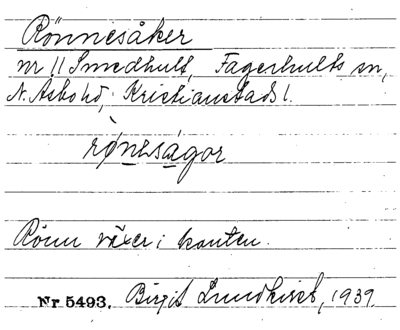 Rönnesåker
nr 11 Smedhult, Fagerhults sn,
N. Asbo hd, Kristianstads l.
rønesågor
Rönn växer i kanten.
Nr 5493. Birgit Lundkvist, 1939.